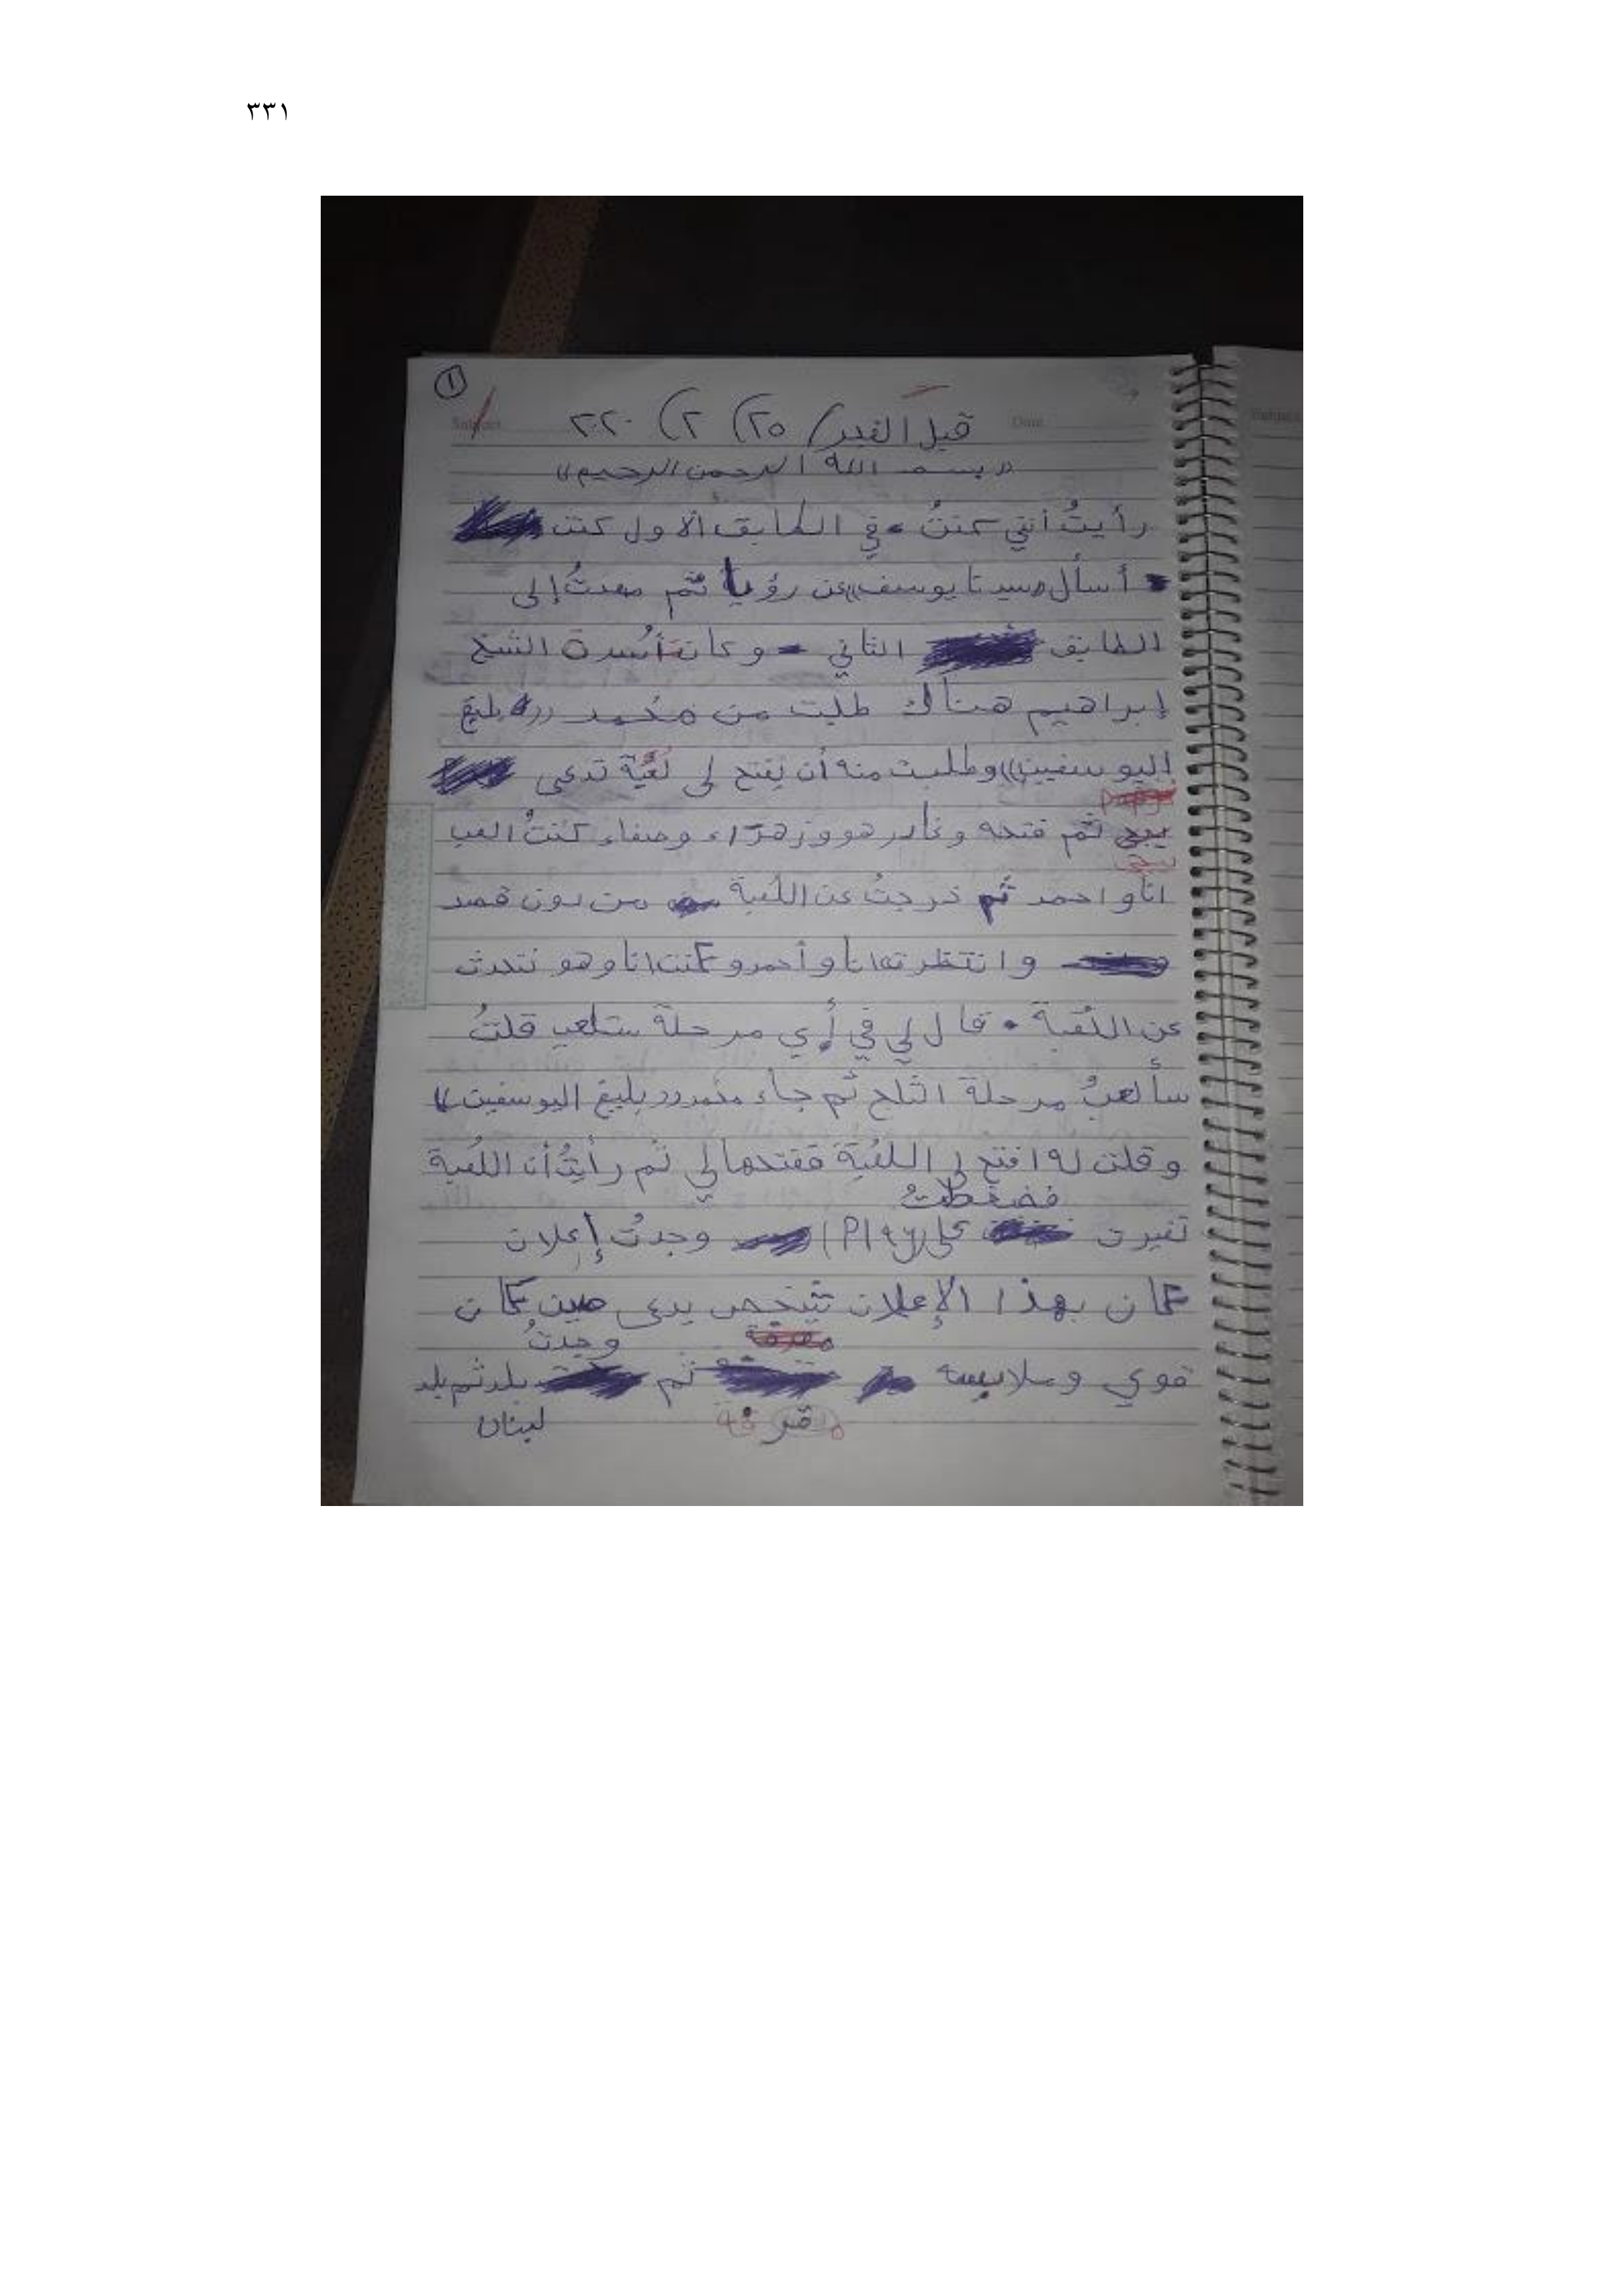 ٣٣١
①
Subject
Date
قبل الفجر / ٢٥) ٢) ٢٠٢٠
«بسم الله الرحمن الرحيم»
رأيتُ أنني كنتُ في الطابق الأول كنت
أسأل «سيدنا يوسف» عن رؤيا ثم صعدتُ إلى
الطابق الثاني وكانت أُسرة الشيخ
إبراهيم هناك طلبت من مُحمد ((بليغ
اليوسفيين)) وطلبت منه أن يفتح لي لُعبة تدعى
ببجي ثم فتحه وغادر هو وزهراء وصفاء كنتُ العب
انا و احمد ثم خرجتُ عن اللُعبة من دون قصد
وانتظرته انا و أحمد و كنت انا وهو نتحدث
عن اللُعبة. قال لي في أي مرحلة ستلعب قلتُ
سألعبُ مرحلة الثلج ثم جاء محمد ((بليغ اليوسفيين))
وقلت له افتح لي اللُعبة ففتحها لي ثم رأيتُ أن اللُعبة
فضغطتُ
تغيرت على (Play) وجدتُ إعلان
كان بهذا الإعلان شخص يدعى كان
وجدتُ
قوي وملابسه ثم بلد ثم بلد
لبنان